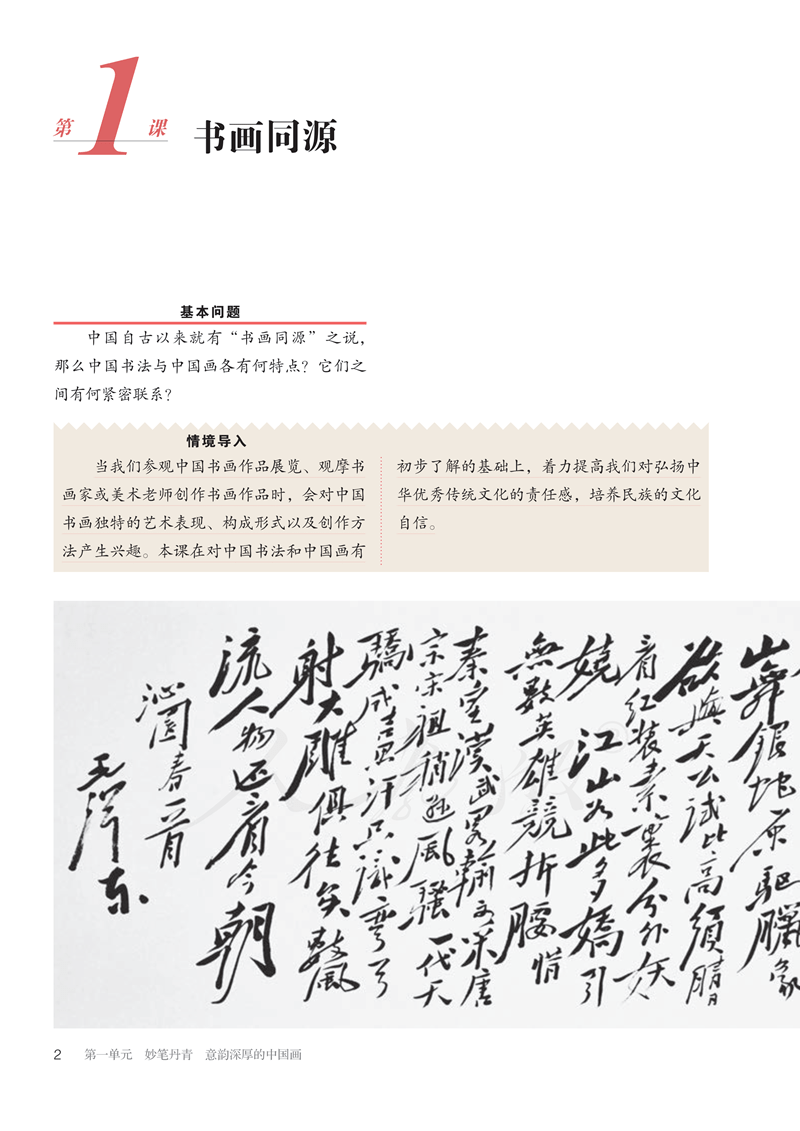 第1课 书画同源
基本问题
中国自古以来就有“书画同源”之说，
那么中国书法与中国画各有何特点？它们之
间有何紧密联系？
情境导入
当我们参观中国书画作品展览、观摩书
画家或美术老师创作书画作品时，会对中国
书画独特的艺术表现、构成形式以及创作方
法产生兴趣。本课在对中国书法和中国画有
初步了解的基础上，着力提高我们对弘扬中
华优秀传统文化的责任感，培养民族的文化
自信。
山舞銀蛇原驱臘象
欲與天公試比高須晴日
看红装素裹分外妖
嬈 江山如此多嬌引
無數英雄競折腰惜
秦皇漢武畧輸文采唐
宗宋祖稍遜風騷一代天
驕成吉思汗只識彎弓
射大雕俱往矣數風
流人物还看今朝
沁園春一首
毛澤东
2 第一单元 妙笔丹青 意韵深厚的中国画